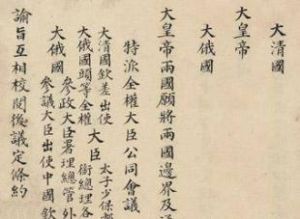 大清國
大皇帝
大俄國
大皇帝兩國願將兩國邊界及通
特派全權大臣公同會議
大清國欽差出使
大俄國頭等全權
大臣
太子少保
銜總理各
大俄國
參政大臣署理總管外
參議大臣出使中國欽
諭旨互相校閱後議定條約